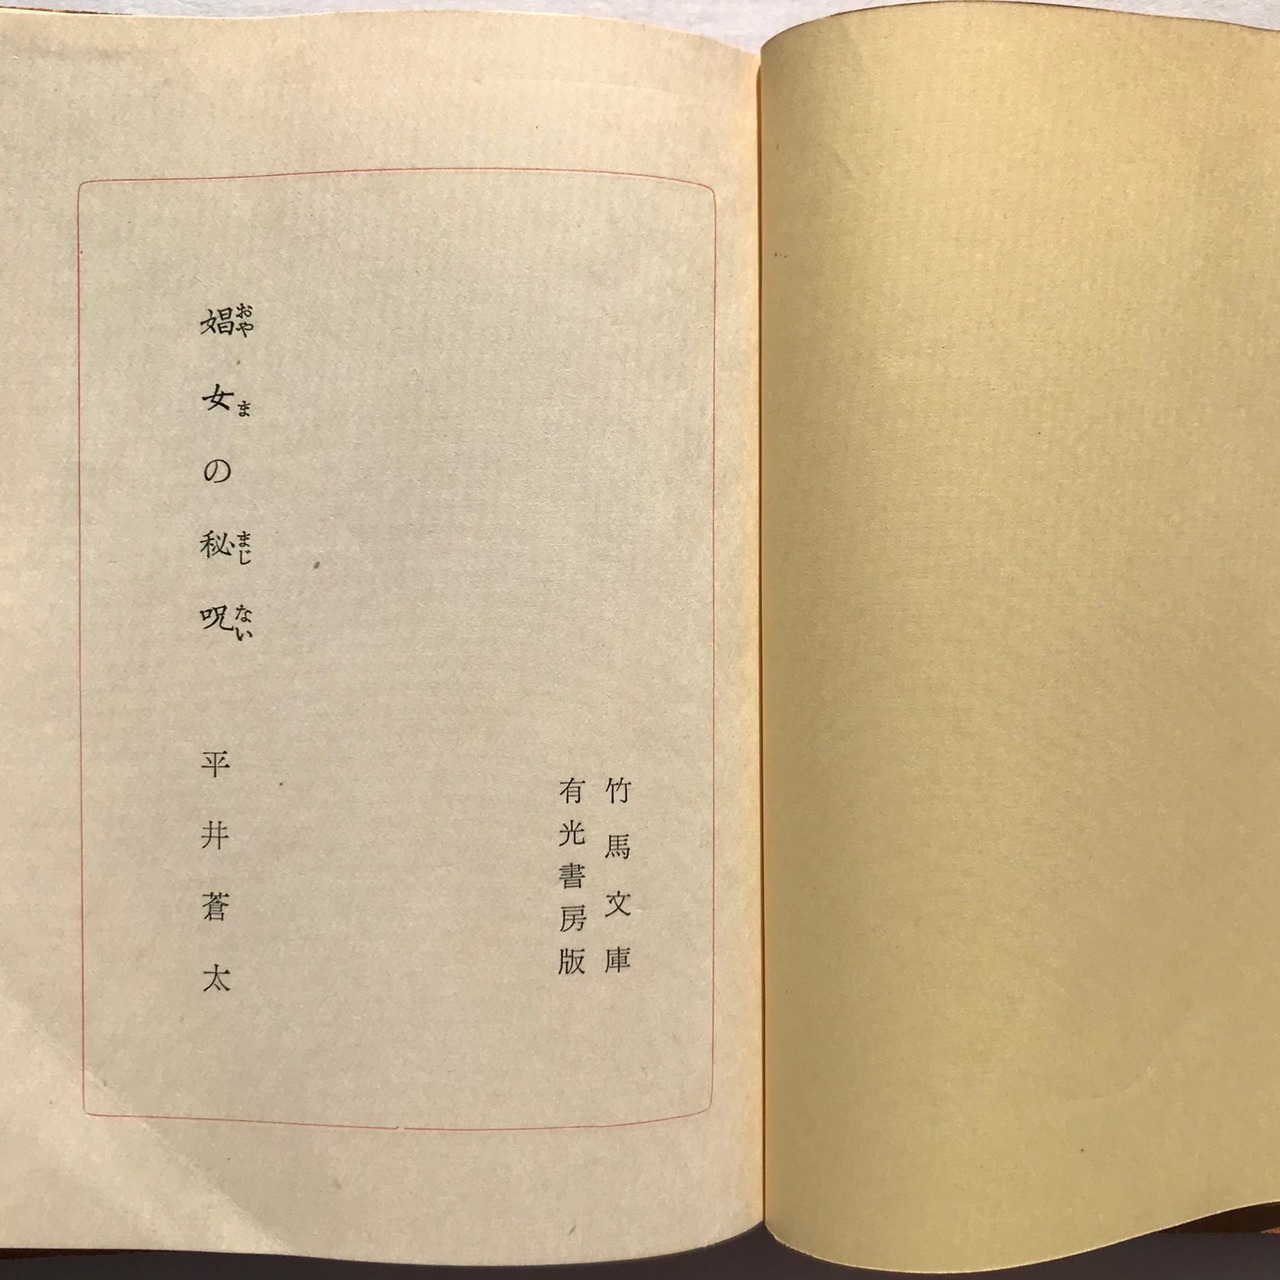 竹馬文庫
有光書房版
娼女の秘呪 平井蒼太
おやま まじない